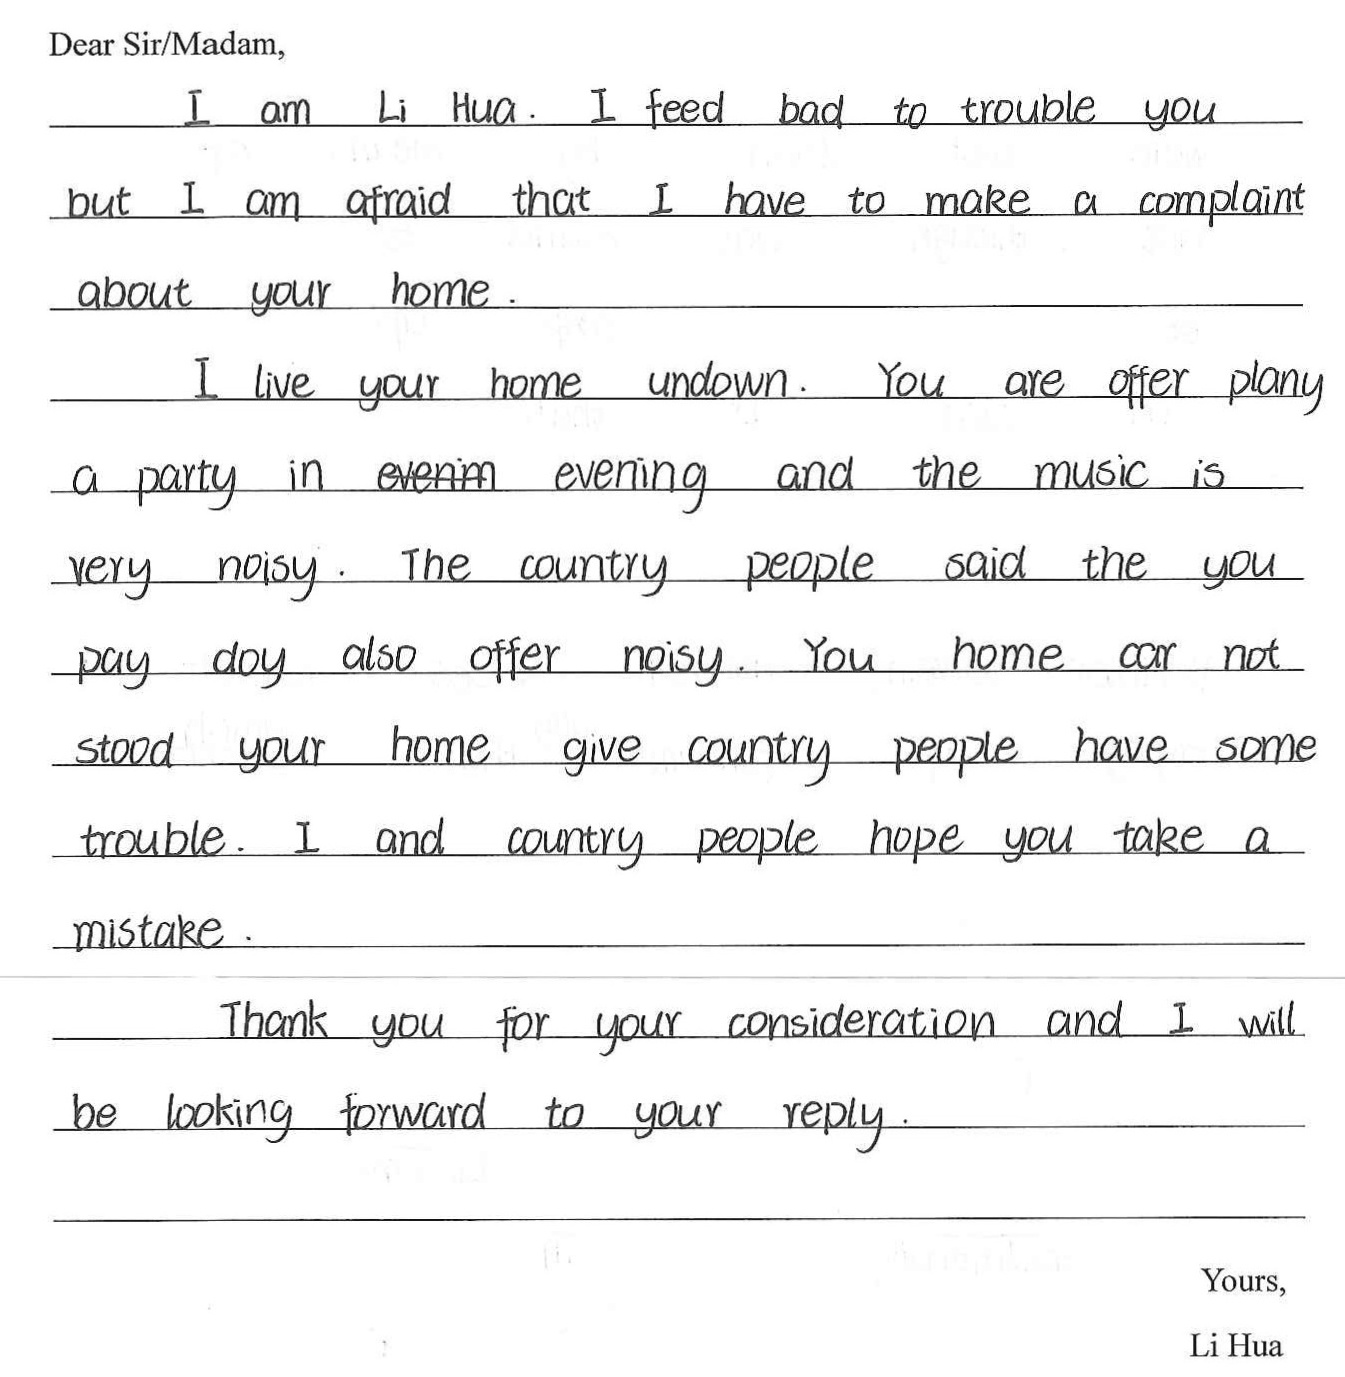 Dear Sir/Madam,
I am Li Hua. I feed bad to trouble you
but I am afraid that I have to make a complaint
about your home.
I live your home undown. You are offer plany
a party in evenim evening and the music is
very noisy. The country people said the you
pay doy also offer noisy. You home car not
stood your home give country people have some
trouble. I and country people hope you take a
mistake.
Thank you for your consideration and I will
be looking forward to your reply.
Yours,
Li Hua